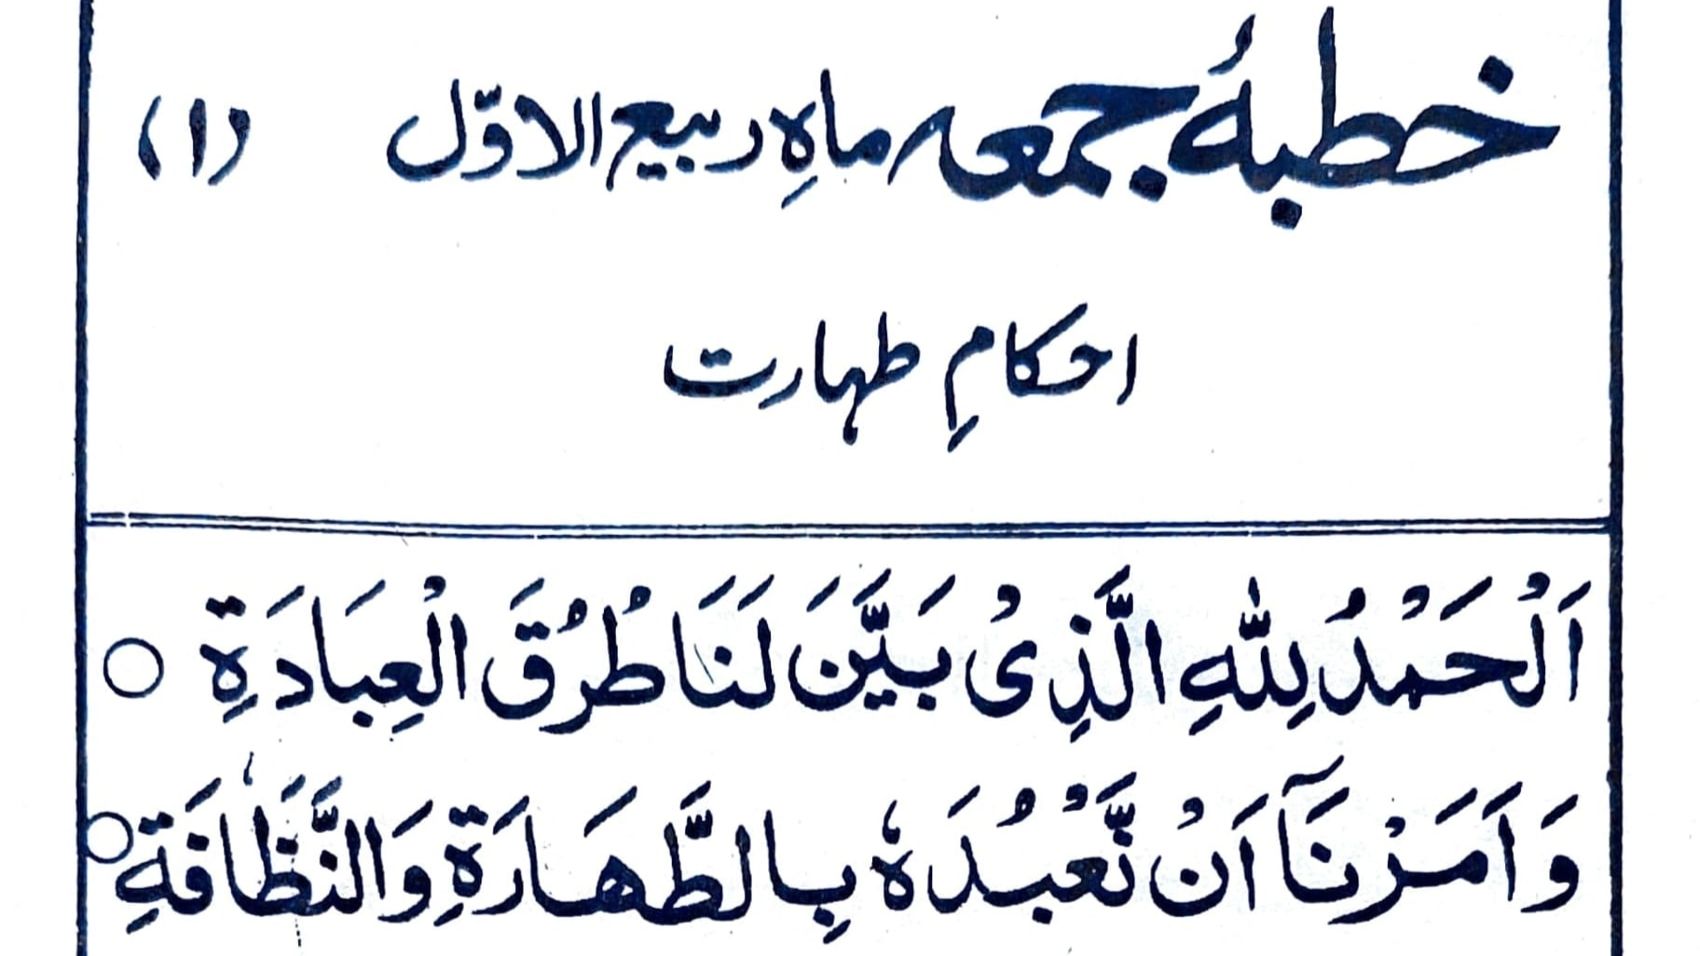 خطبۂ جمعہ ماہِ ربیع الاوّل (۱)
احکامِ طہارت
اَلْحَمْدُ لِلّٰهِ الَّذِیْ بَیَّنَ لَنَا طُرُقَ الْعِبَادَةِ ○
وَاَمَرْنَآ اَنْ نَّعْبُدَهٗ بِالطَّهَارَةِ وَالنَّظَافَةِ ○